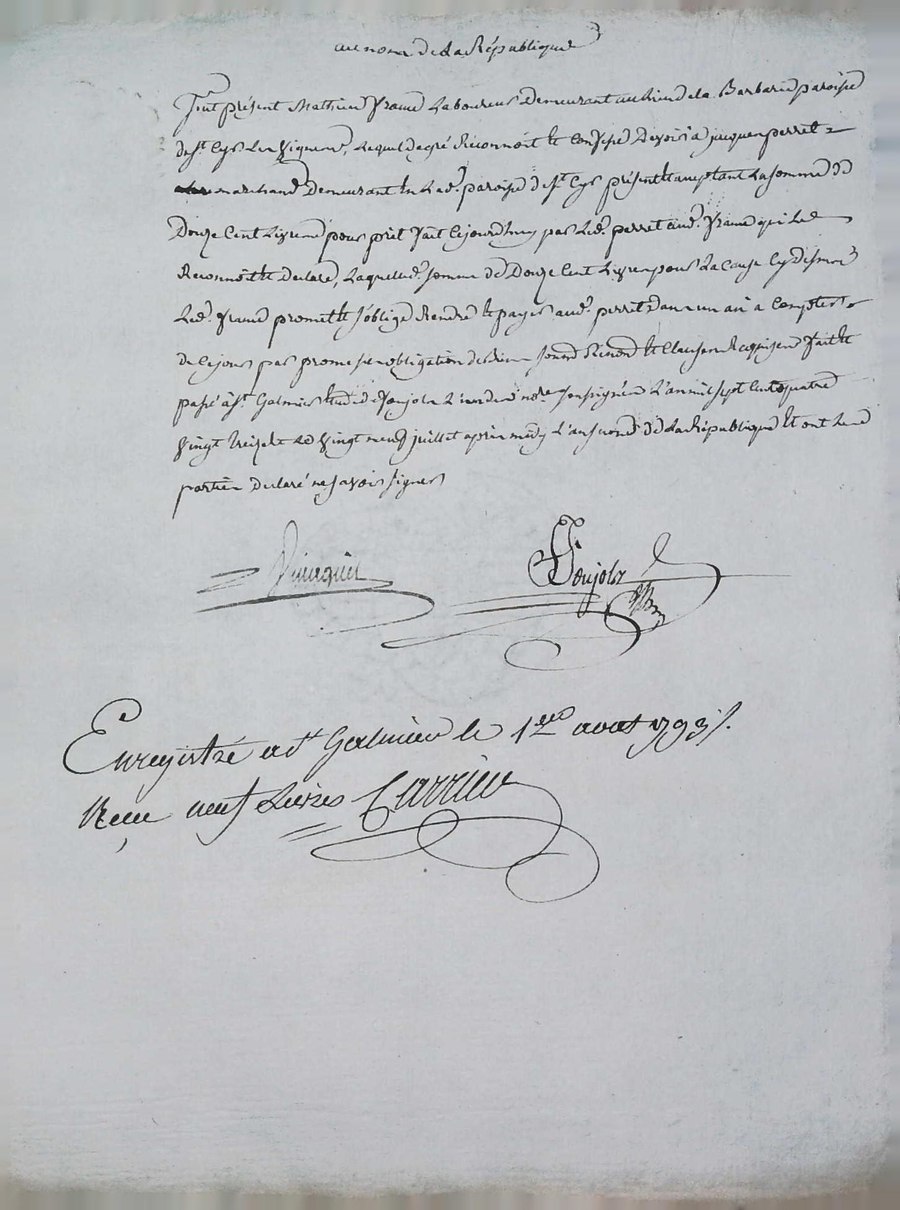 au nom de la République
Fut présent Mathieu Frame Laboureur demeurant au lieu de la Barbarie paroisse
de St Cyr Les Vignes, Lequel de gré Reconnoit et Confesse devoir à jacques perret
marchand demeurant en Lad. paroisse de St Cyr présent et acceptant La somme de
Douze Cent Livres pour prêt fait Cejourd'huy par Led. perret aud. Frame qui Le
Reconnoit et Declare, Laquelle d. somme de Douze Cent Livres pour La Cause Cy dessus
Led. Frame promet et s'oblige Rendre et payer aud. perret dans un an a Compter
de Ce jour par promesse obligation de biens soumd Renond et Clauses Requises fait et
passé à St Galmier Etude de Poujolz L'un des nores soussignés L'an mil sept Cent quatre
vingt treize Le vingt neuf juillet après midy L'an second de La République et ont Les d
parties declaré ne savoir signer
Poujolz
Enregistré a St Galmier le 1er aout 1793
Reçu neuf Livres Carrier